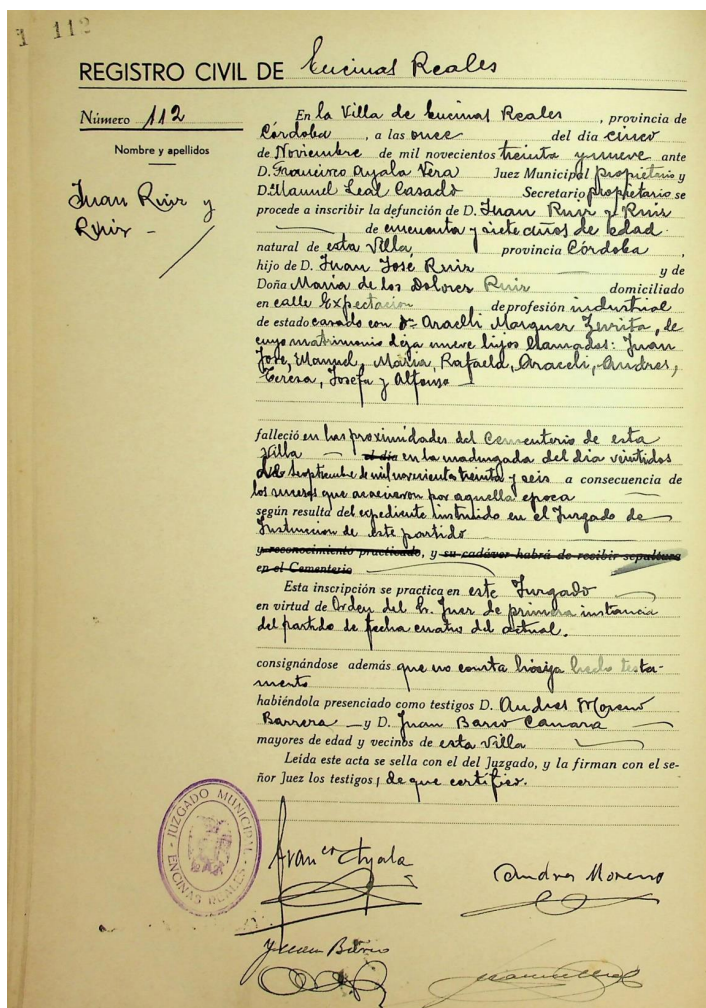 1 112
REGISTRO CIVIL DE Encinas Reales
Número 112
Nombre y apellidos
Juan Ruiz y
Ruiz -
En la Villa de Encinas Reales, provincia de
Córdoba, a las once del día cinco
de Noviembre de mil novecientos treinta y nueve ante
D. Francisco Ayala Vera Juez Municipal propietario y
D. Manuel Leal Casado Secretario propietario se
procede a inscribir la defunción de D. Juan Ruiz y Ruiz
de cincuenta y siete años de edad
natural de esta Villa provincia Córdoba,
hijo de D. Juan José Ruiz y de
Doña Maria de los Dolores Ruiz domiciliado
en calle Expectacion de profesión industrial
de estado casado con Dª Aracelli Marquez Zurrita, de
cuyo matrimonio deja nueve hijos llamados: Juan
José, Manuel, Maria, Rafaela, Araceli, Andres,
Teresa, Josefa y Alfonso
falleció en las proximidades del Cementerio de esta
Villa el día en la madrugada del dia veintidos
de Septiembre de mil novecientos treinta y seis a consecuencia de
los sucesos que acaecieron por aquella epoca
según resulta del expediente instruido en el Juzgado de
Instruccion de este partido
y reconocimiento practicado, y su cadáver habrá de recibir sepultura
en el Cementerio
Esta inscripción se practica en este Juzgado
en virtud de Orden del Sr. Juez de primera instancia
del partido de fecha cuatro del actual.
consignándose además que no consta hecho testa-
mento
habiéndola presenciado como testigos D. Andres Moreno
Barrera y D. Juan
mayores de edad y vecinos de esta Villa
Leida este acta se sella con el del Juzgado, y la firman con el se-
ñor Juez los testigos, de que certifico.
JUZGADO MUNICIPAL
ENCINAS REALES
Franco Ayala
Andres Moreno
Juan